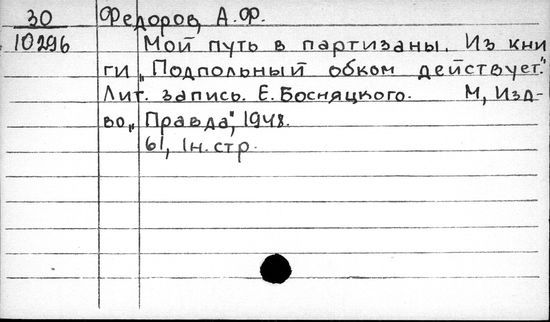 30 Федоров, А. Ф.
10296 Мой путь в партизаны. Из кни
ги „Подпольный обком действует."
Лит. запись. Е. Босняцкого. М, Изд-
во „Правда", 1948.
61, 1н. стр.